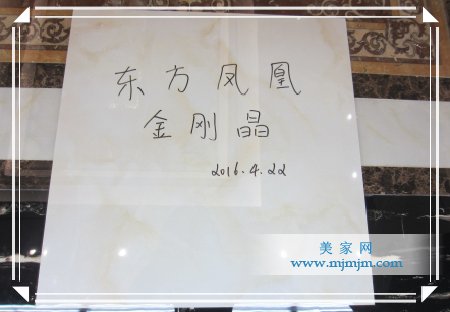 东方凤凰
金刚晶
2016.4.22
美家网
www.mjmjm.com